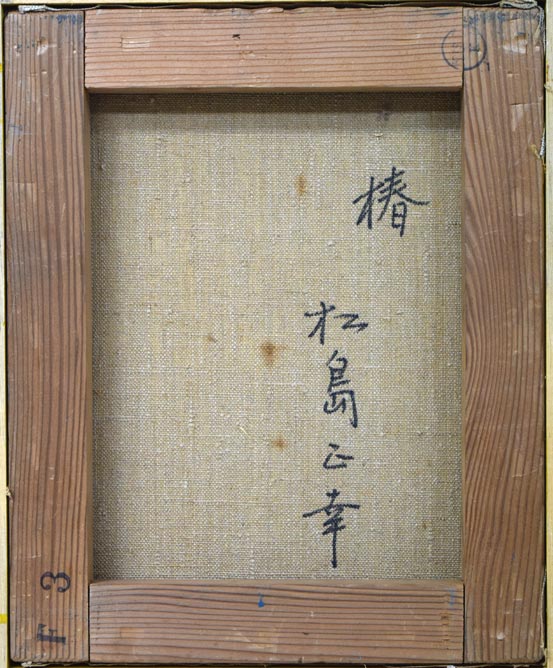 椿
松島正幸
F3